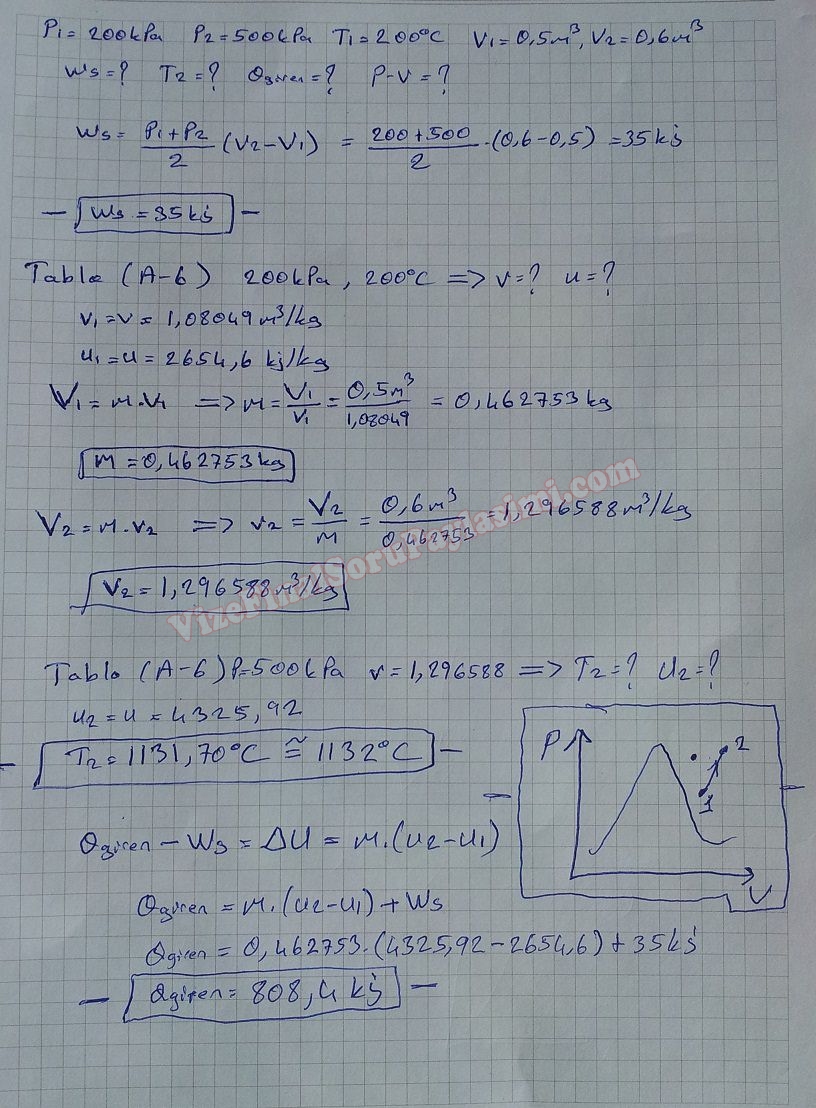 P1 = 200kPa P2 = 500kPa T1 = 200°C V1 = 0,5m³, V2 = 0,6m³
Ws = ? T2 = ? Qgiren = ? P-V = ?
Ws = P1+P2/2 (V2-V1) = 200+500/2 ·(0,6-0,5) = 35kj
— Ws = 35kj —
Tablo (A-6) 200kPa, 200°C => v=? u=?
v1 = v = 1,08049 m³/kg
u1 = u = 2654,6 kj/kg
V1 = m·v1 => m = V1/v1 = 0,5m³/1,08049 = 0,462753 kg
m = 0,462753 kg
V2 = m·v2 => v2 = V2/m = 0,6m³/0,462753 = 1,296588 m³/kg
v2 = 1,296588 m³/kg
VizeFinalSoruPaylasimi.com
Tablo (A-6) P=500kPa v = 1,296588 => T2=? U2=?
u2 = u = 4325,92
— T2 = 1131,70°C ≅ 1132°C —
P 2 1 V
Qgiren - Ws = ΔU = m·(u2-u1)
Qgiren = m·(u2-u1) + Ws
Qgiren = 0,462753·(4325,92-2654,6) + 35kj
— Qgiren = 808,4 kj —